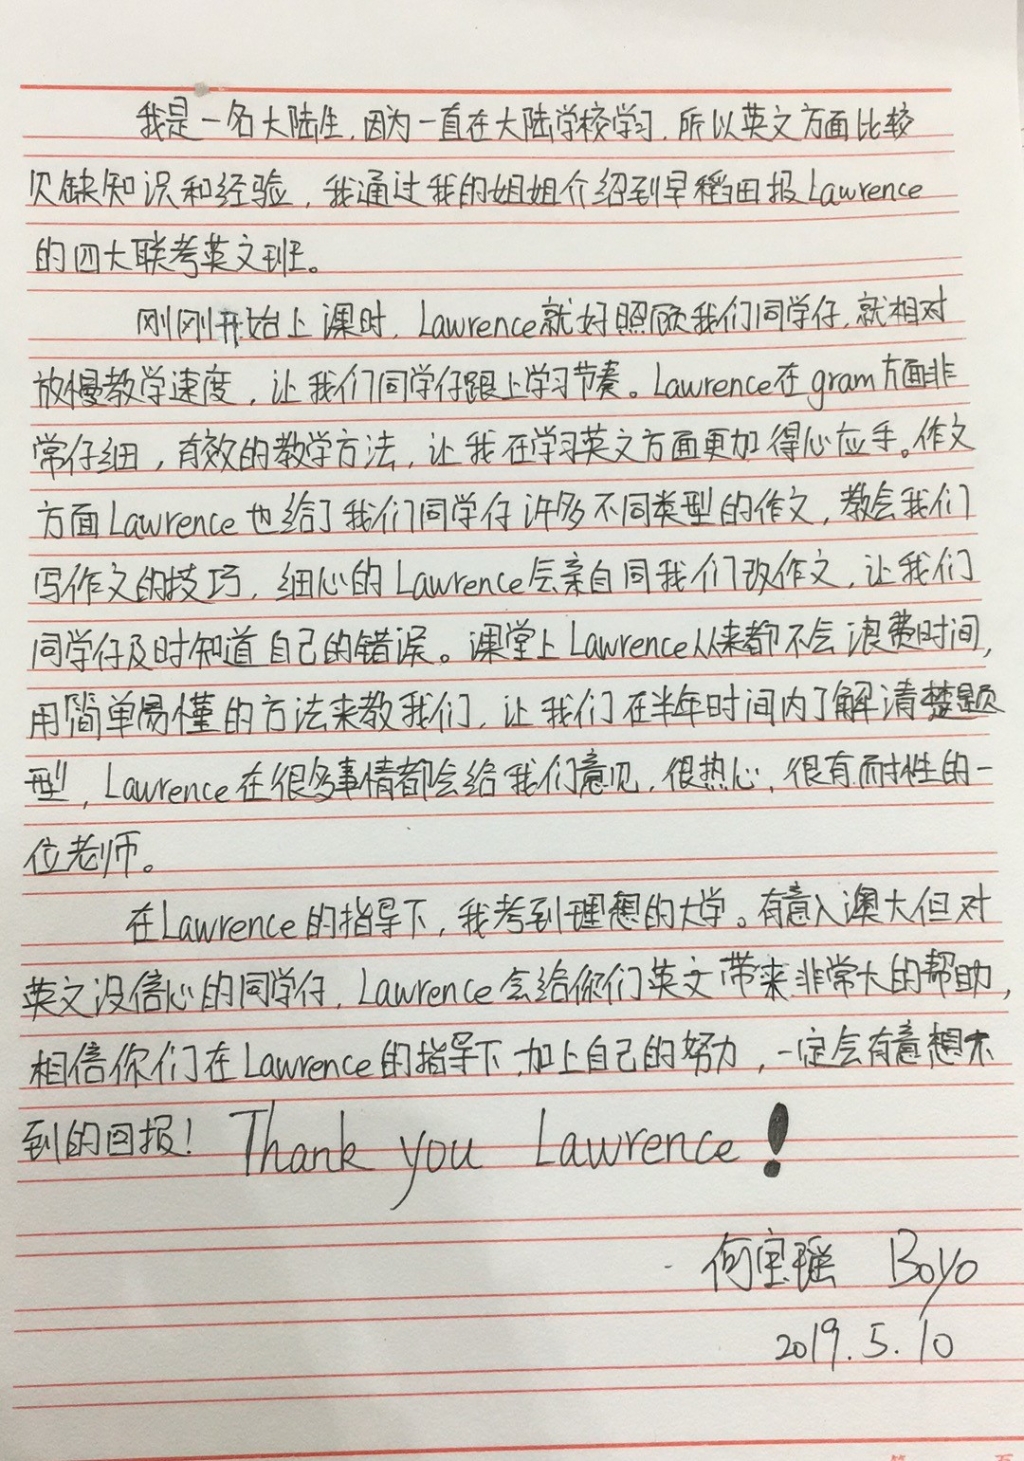 我是一名大陆生,因为一直在大陆学校学习,所以英文方面比较
欠缺知识和经验，我通过我的姐姐介绍到早稻田报Lawrence
的四大联考英文班。
刚刚开始上课时,Lawrence就好照顾我们同学仔,就相对
放慢教学速度，让我们同学仔跟上学习节奏。Lawrence在gram方面非
常仔细，有效的教学方法，让我在学习英文方面更加得心应手。作文
方面Lawrence也给了我们同学仔许多不同类型的作文，教会我们
写作文的技巧，细心的Lawrence会亲自同我们改作文，让我们
同学仔及时知道自己的错误。课堂上Lawrence从来都不会浪费时间,
用简单易懂的方法来教我们，让我们在半年时间内了解清楚题
型，Lawrence在很多事情都会给我们意见，很热心，很有耐性的一
位老师。
在Lawrence的指导下，我考到理想的大学。有意入澳大但对
英文没信心的同学仔，Lawrence会给你们英文带来非常大的帮助，
相信你们在Lawrence的指导下,加上自己的努力，一定会有意想不
到的回报！Thank you Lawrence!
何宝瑶 Boyo
2019.5.10